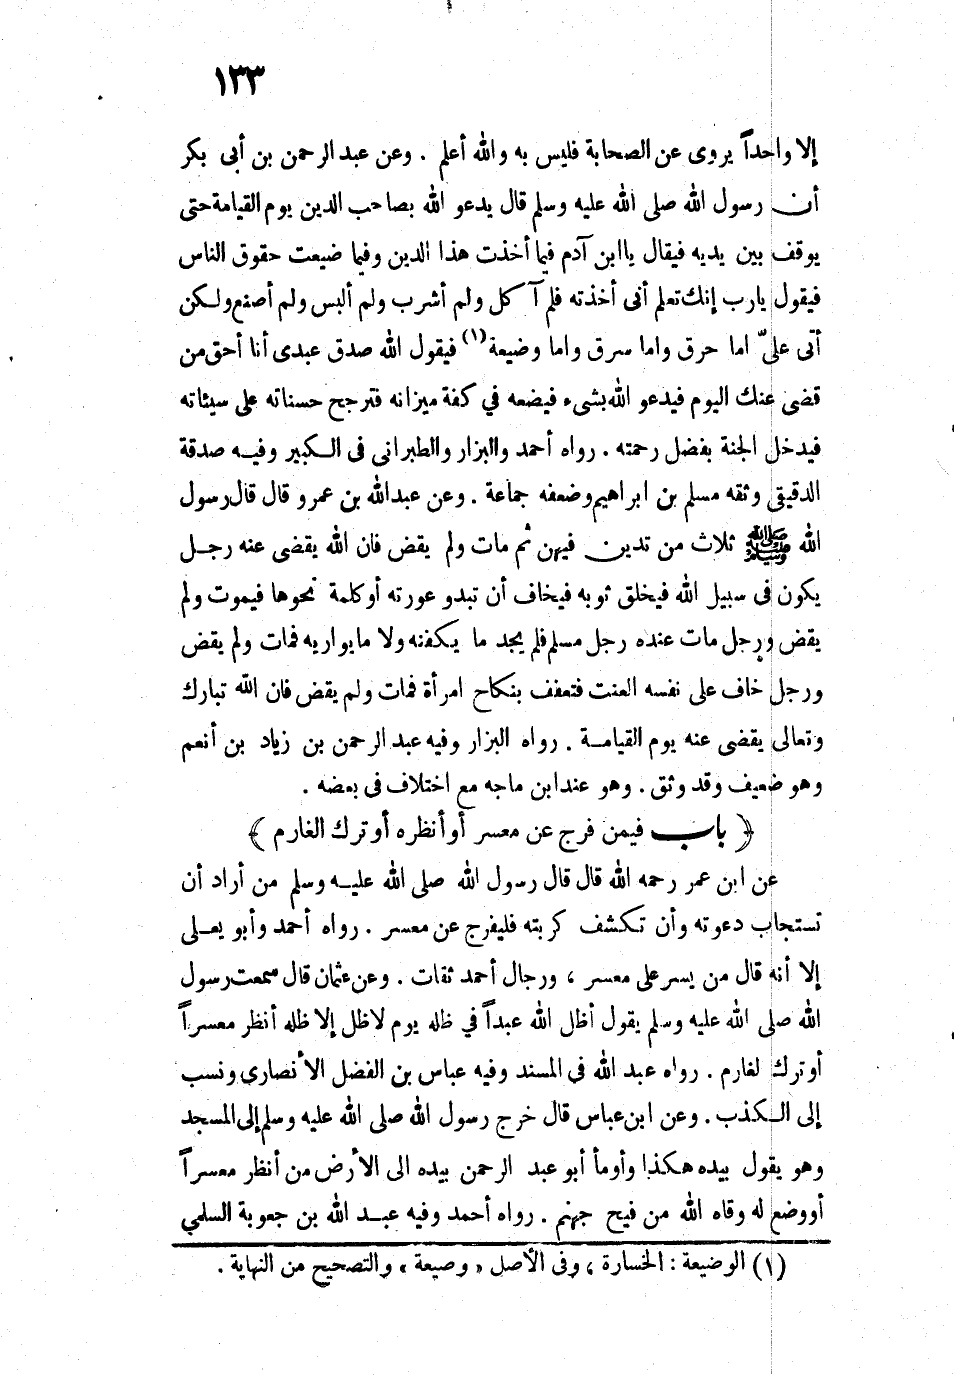 ١٣٣
إلا واحداً يروى عن الصحابة فليس به والله أعلم . وعن عبد الرحمن بن أبى بكر
أن رسول الله صلى الله عليه وسلم قال يدعو الله بصاحب الدين يوم القيامة حتى
يوقف بين يديه فيقال يا ابن آدم فيما أخذت هذا الدين وفيما ضيعت حقوق الناس
فيقول يارب إنك تعلم أنى أخذته فلم آكل ولم أشرب ولم ألبس ولم أصنع ولكن
أتى علىّ اما حرق واما سرق واما وضيعة (١) فيقول الله صدق عبدى أنا أحق من
قضى عنك اليوم فيدعو الله بشىء فيضعه في كفة ميزانه فترجح حسناته على سيئاته
فيدخل الجنة بفضل رحمته . رواه أحمد والبزار والطبرانى فى الكبير وفيه صدقة
الدقيقى وثقه مسلم بن ابراهيم وضعفه جماعة . وعن عبدالله بن عمرو قال قال رسول
الله ﷺ ثلاث من تدين فيهن ثم مات ولم يقض فان الله يقضى عنه رجل
يكون فى سبيل الله فيخلق ثوبه فيخاف أن تبدو عورته أوكلمة نحوها فيموت ولم
يقض ورجل مات عنده رجل مسلم فلم يجد ما يكفنه ولا مايواريه فمات ولم يقض
ورجل خاف على نفسه العنت فتعفف بنكاح امرأة فمات ولم يقض فان الله تبارك
وتعالى يقضى عنه يوم القيامة . رواه البزار وفيه عبد الرحمن بن زياد بن أنعم
وهو ضعيف وقد وثق . وهو عند ابن ماجه مع اختلاف فى بعضه .
﴿ باب فيمن فرج عن معسر أو أنظره أو ترك الغارم ﴾
عن ابن عمر رحمه الله قال قال رسول الله صلى الله عليه وسلم من أراد أن
تستجاب دعوته وأن تكشف كربته فليفرج عن معسر . رواه أحمد وأبو يعلى
إلا أنه قال من يسر على معسر ، ورجال أحمد ثقات . وعن عثمان قال سمعت رسول
الله صلى الله عليه وسلم يقول أظل الله عبداً في ظله يوم لاظل إلا ظله أنظر معسراً
أوترك لغارم . رواه عبد الله فى المسند وفيه عباس بن الفضل الأنصارى ونسب
إلى الكذب . وعن ابن عباس قال خرج رسول الله صلى الله عليه وسلم إلى المسجد
وهو يقول بيده هكذا وأومأ أبو عبد الرحمن بيده الى الأرض من أنظر معسراً
أووضع له وقاه الله من فيح جهنم . رواه أحمد وفيه عبد الله بن جعوبة السلمي
(١) الوضيعة : الخسارة ، وفى الأصل « وصيعة » والتصحيح من النهاية .